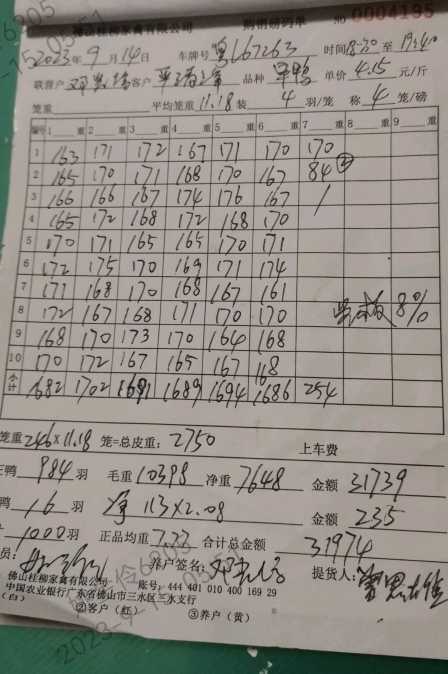 佛山桂柳家禽有限公司 购销磅码单 No 0004195
2023年9月14日 车牌号 粤L67263 时间18:30至19:40
联营户 客户 品种 单价4.15元/斤
笼重 平均笼重11.18装4羽/笼 称4笼/磅
编号 1 重 2 重 3 重 4 重 5 重 6 重 7 重 8 重 9 重
1 163 171 172 167 171 170 170
2 165 170 171 168 170 167 84②
3 166 166 167 174 176 167 /
4 165 172 168 172 168 170
5 170 171 165 165 170 171
6 172 175 170 169 171 174
7 171 168 170 168 167 161
8 172 167 168 171 170 170 8%
9 168 170 173 170 164 168
10 170 172 167 165 167 168
合计 1682 1702 1691 1689 1694 1686 254
笼重246×11.18 笼=总皮重:2750 上车费
鸭984羽 毛重10398 净重7648 金额31739
鸭16羽 净113×2.08 金额235
1000羽 正品均重7.77 合计总金额31974
员: 养户签名: 提货人:
佛山桂柳家禽有限公司 账号:444 481 010 400 169 29
中国农业银行广东省佛山市三水区三水支行
(白) ②客户(红) ③养户(黄)